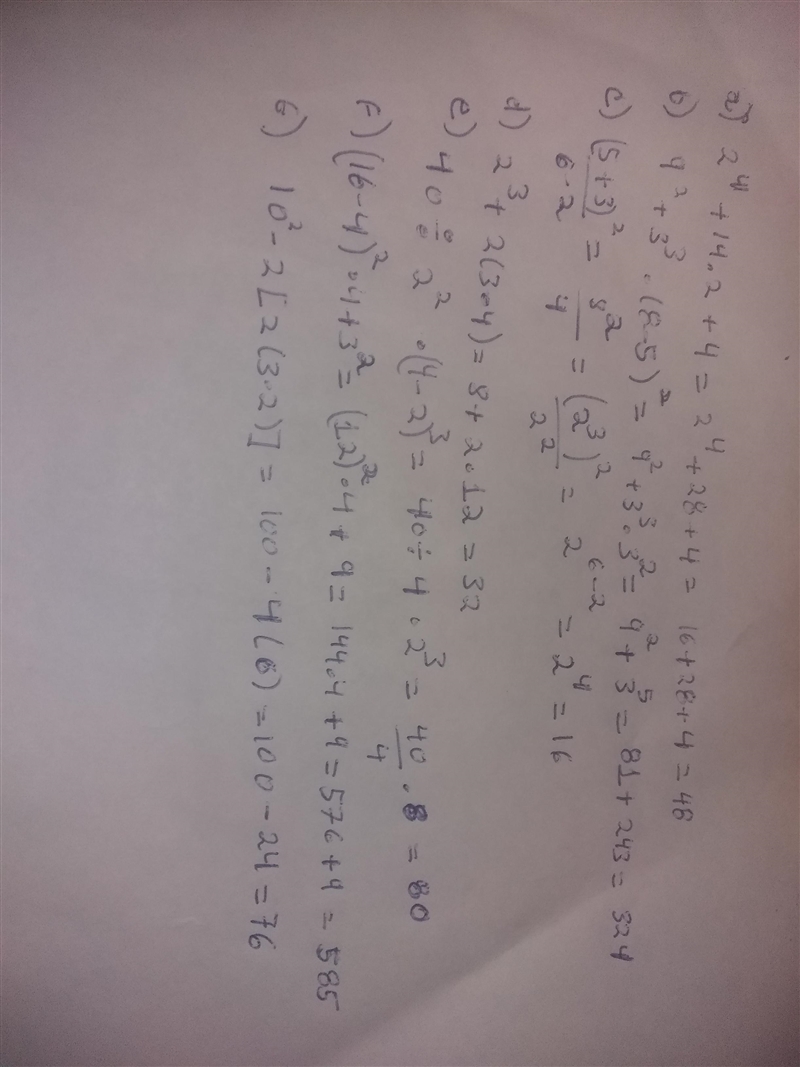 a) 2⁴ + 14.2 + 4 = 2⁴ + 28 + 4 = 16 + 28 + 4 = 48
b) 9² + 3³ . (8-5)² = 9² + 3³ . 3² = 9² + 3⁵ = 81 + 243 = 324
c) (5+3)²/6-2 = 8²/4 = (2³)²/2² = 2⁶⁻² = 2⁴ = 16
d) 2³ + 2(3.4) = 8 + 2.12 = 32
e) 40 ÷ 2² .(4-2)³ = 40 ÷ 4 . 2³ = 40/4 . 8 = 80
f) (16-4)² .4 + 3² = (12)² .4 + 9 = 144.4 + 9 = 576 + 9 = 585
G) 10² - 2[2(3.2)] = 100 - 4(6) = 100 - 24 = 76